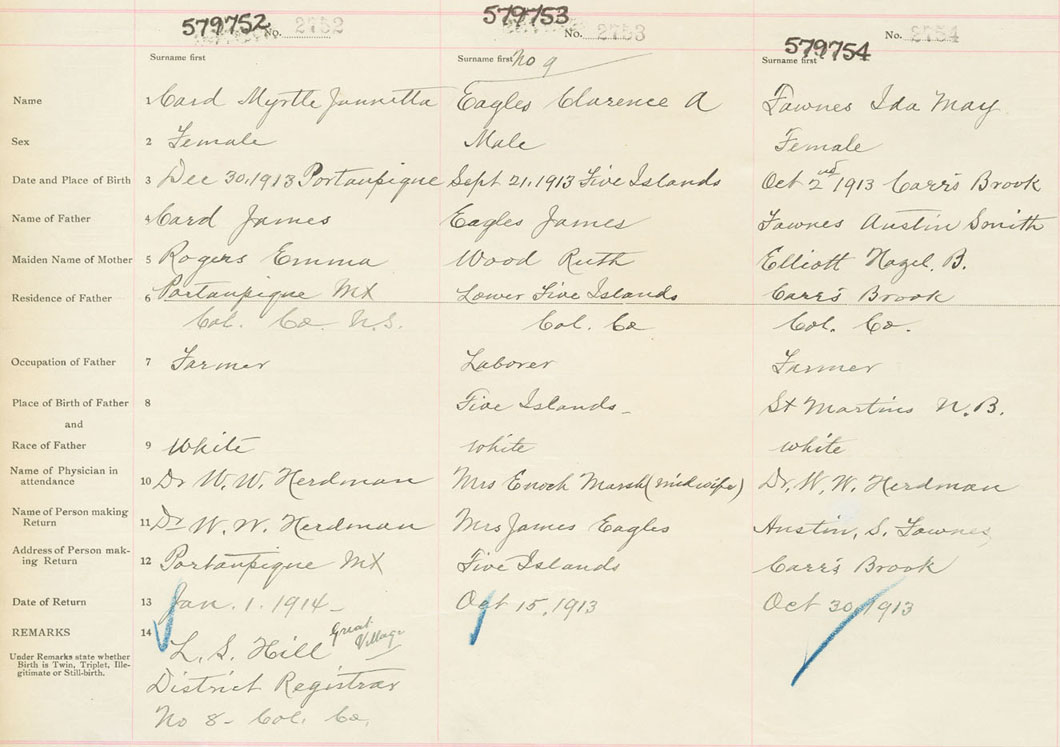 579752 No. 2752 579753 No. 2753 579754 No. 2754
Surname first Surname first No 9 Surname first
Name 1 Card Myrtle Jannetta Eagles Clarence A Fownes Ida May
Sex 2 Female Male Female
Date and Place of Birth 3 Dec 30, 1913 Portaupique Sept 21, 1913 Five Islands Oct 2nd 1913 Carr's Brook
Name of Father 4 Card James Eagles James Fownes Austin Smith
Maiden Name of Mother 5 Rogers Emma Wood Ruth Elliott Hazel. B.
Residence of Father 6 Portaupique Mt Lower Five Islands Carr's Brook
Col. Co N.S. Col. Co Col. Co.
Occupation of Father 7 Farmer Laborer Farmer
Place of Birth of Father 8 Five Islands St Martins N.B.
and
Race of Father 9 White White White
Name of Physician in
attendance 10 Dr W. W. Herdman Mrs Enoch Marsh (midwife) Dr. W. W. Herdman
Name of Person making
Return 11 Dr W. W. Herdman Mrs James Eagles Austin. S. Fownes
Address of Person mak-
ing Return 12 Portaupique Mt Five Islands Carr's Brook
Date of Return 13 Jan. 1. 1914 Oct 15, 1913 Oct 30, 1913
REMARKS 14
Under Remarks state whether
Birth is Twin, Triplet, Ille-
gitimate or Still-birth.
L. S. Hill Great Village
District Registrar
No 8 - Col. Co.